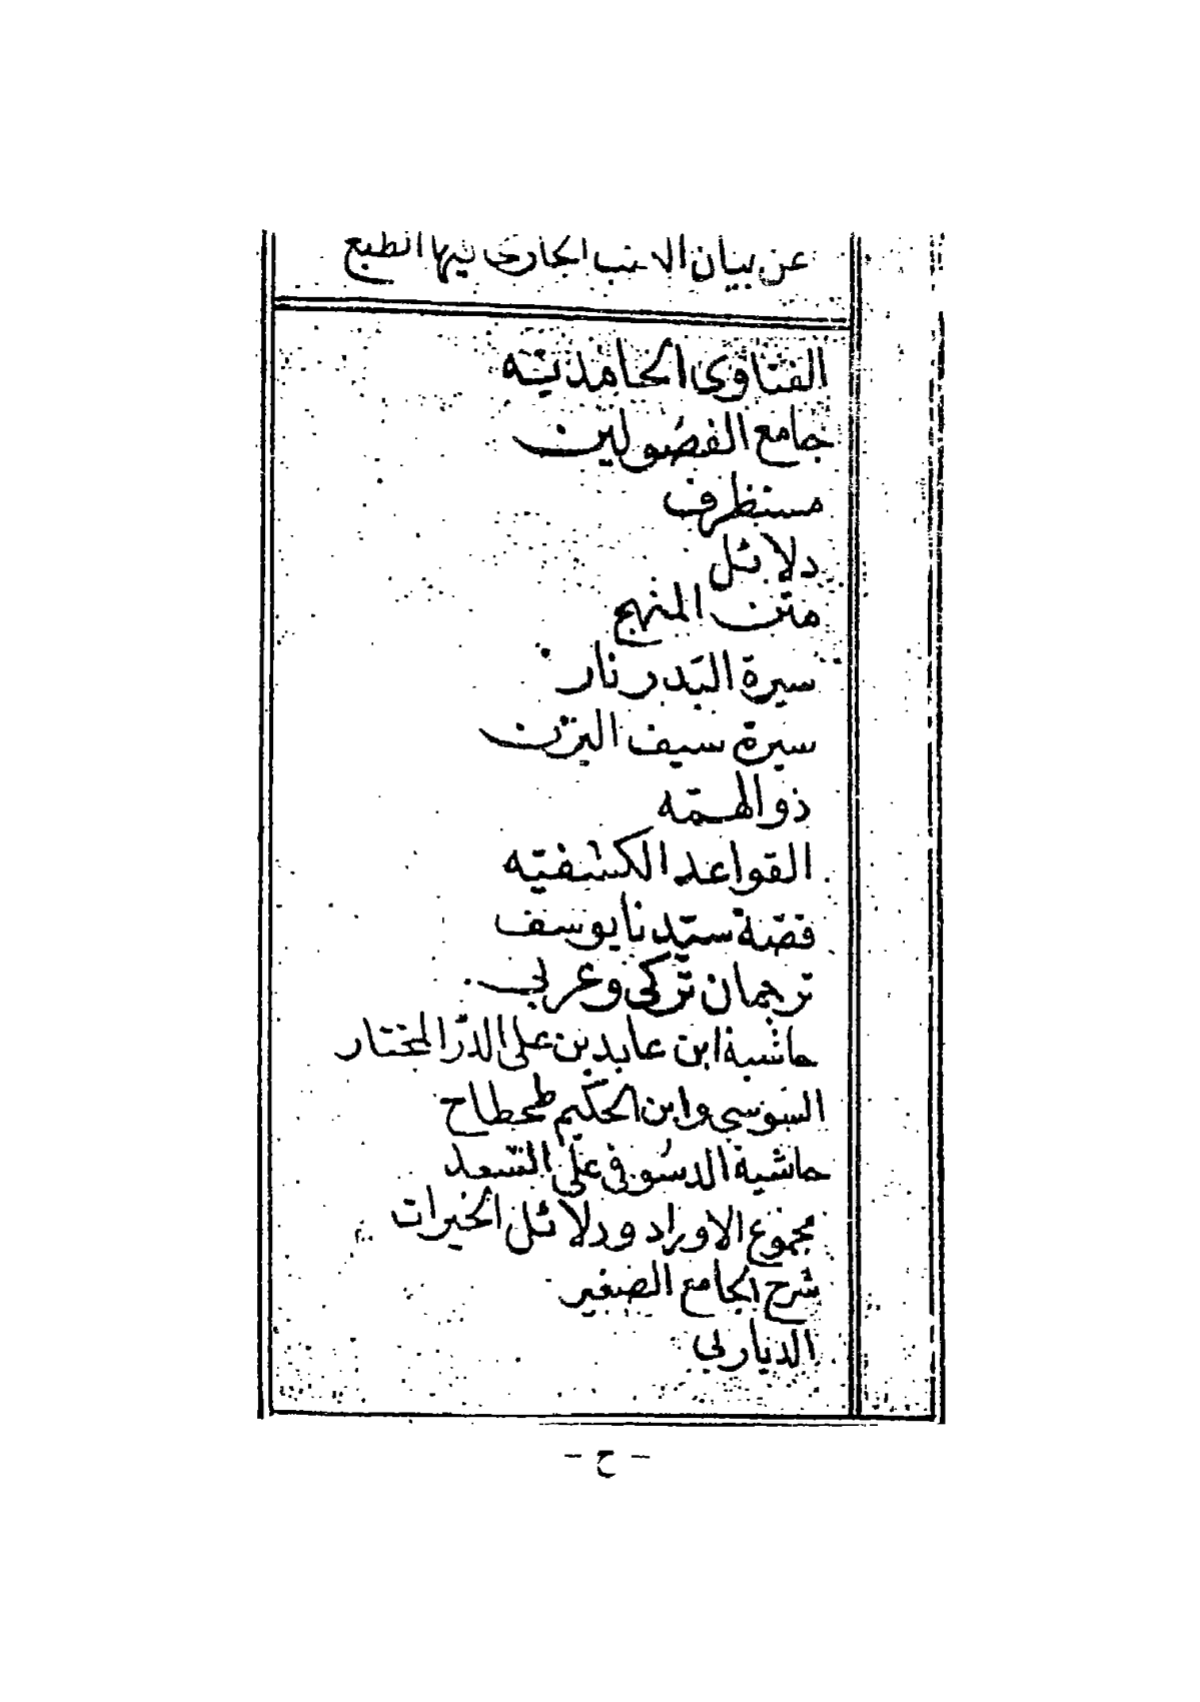 عن بيان الكتب الجارى فيها الطبع
الفتاوى الحامديّه
جامع الفصولين
مستظرف
دلائل
متن المنهج
سيرة البدر نار
سيرة سيف اليزن
ذو الهمّه
القواعد الكشفيّه
قصّة سيّدنا يوسف
ترجمان تركى وعربى
حاشية ابن عابدين على الدرّ المختار
السّوسى وابن الحكيم طحطاح
حاشية الدسوقى على السّعد
مجموع الاوراد ودلائل الخيرات
شرح الجامع الصغير
الديار بى
- ح -